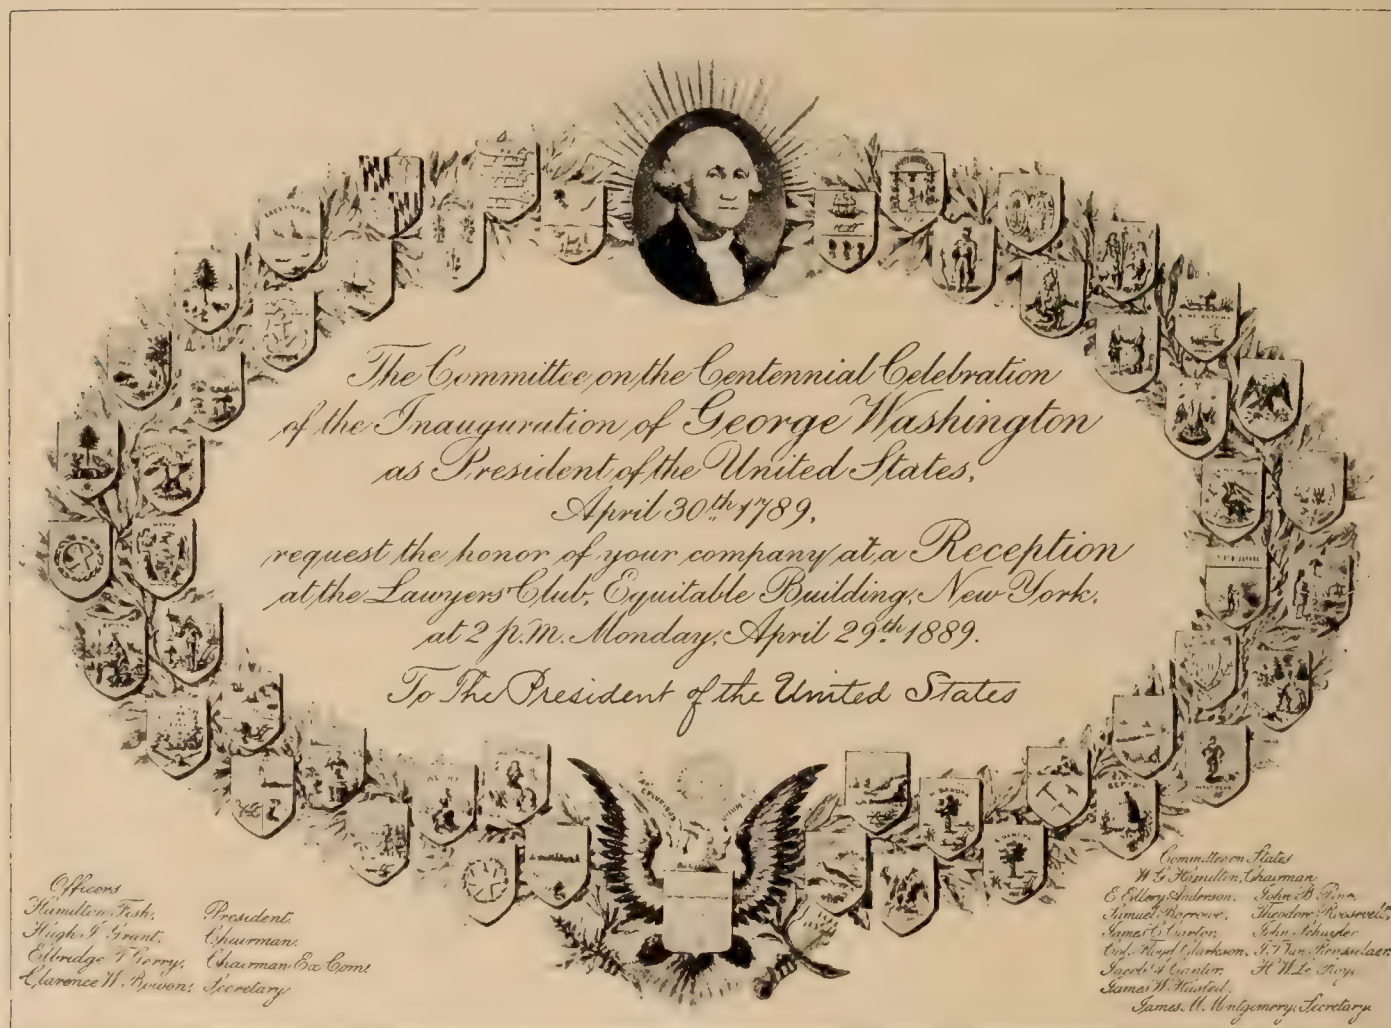 The Committee on the Centennial Celebration
of the Inauguration of George Washington
as President of the United States,
April 30th 1789,
request the honor of your company at a Reception
at the Lawyers' Club, Equitable Building, New York,
at 2 p.m. Monday, April 29th 1889.
To The President of the United States
E PLURIBUS UNUM
Officers
Hamilton Fish, President.
Hugh J. Grant, Chairman.
Elbridge T. Gerry, Chairman Ex Com
Clarence W. Bowen, Secretary
Committee on States
W. G. Hamilton, Chairman
E. Ellery Anderson, John B. Pine,
Samuel Borrowe, Theodore Roosevelt,
James C. Carter, John Schuyler
Floyd Clarkson, J. Van Rensselaer,
Jacob A. Cantor, H. W. Le Roy,
James W. Husted,
James M. Montgomery, Secretary